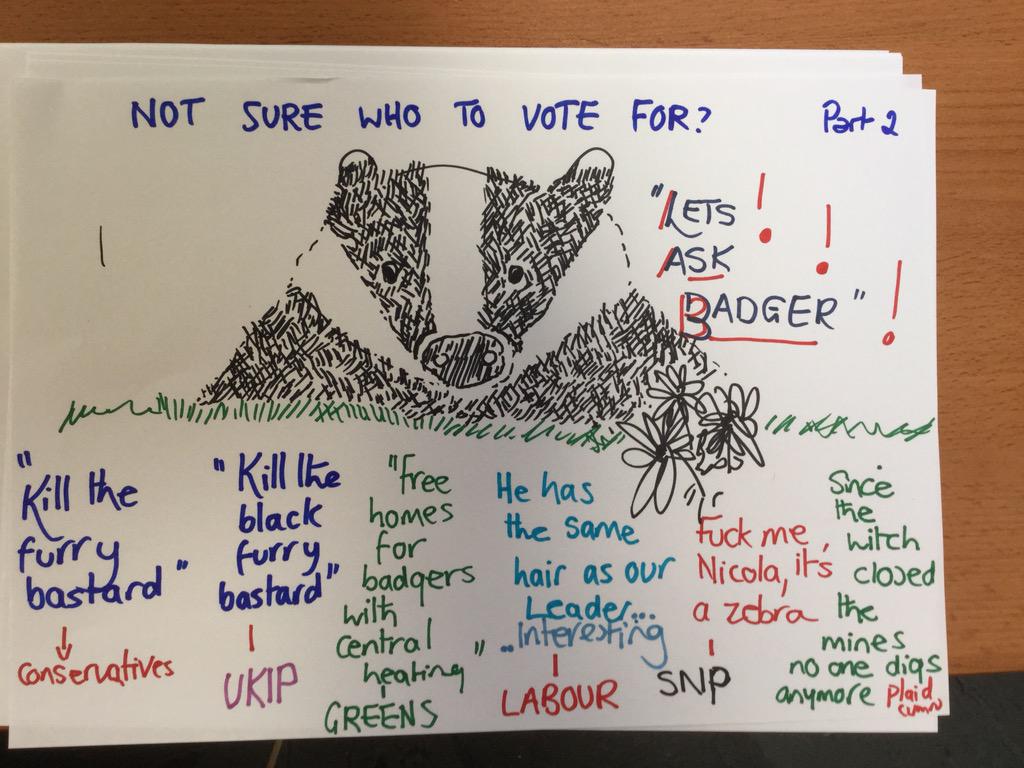 NOT SURE WHO TO VOTE FOR?
Part 2
"LETS
ASK
BADGER"
"Kill the
furry
bastard"
Conservatives
"Kill the
black
furry
bastard"
UKIP
"free
homes
for
badgers
with
central
heating"
GREENS
He has
the same
hair as our
Leader...
...interesting
LABOUR
"Fuck me,
Nicola, it's
a zebra
SNP
Since
the
witch
closed
the
mines
no one digs
anymore
Plaid